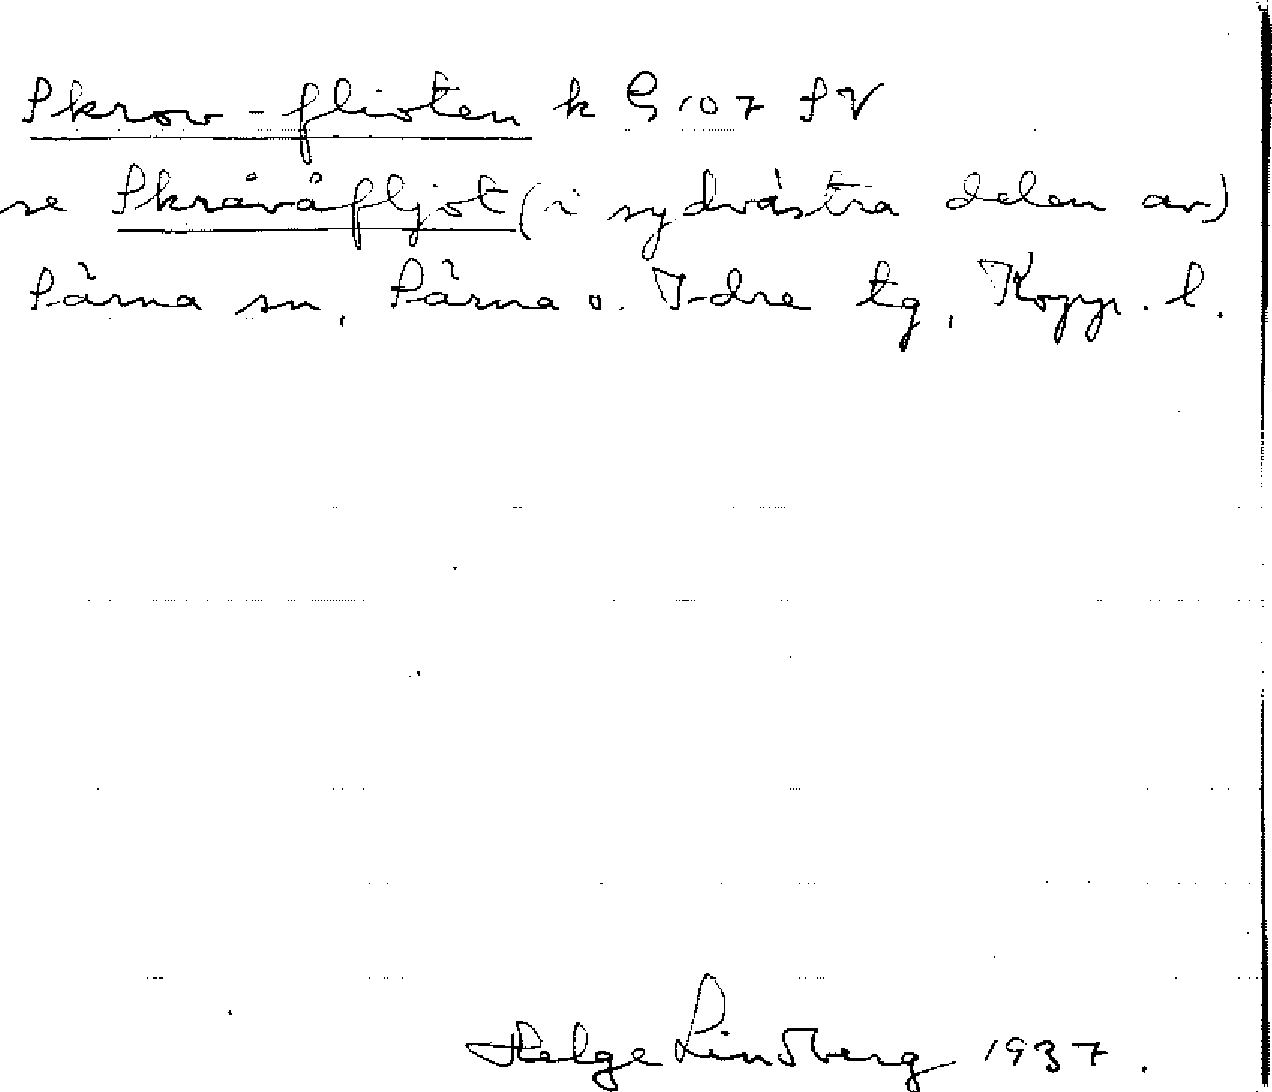 Skrow-flioten k G 107 SV
se Skråvåfljot (i sydvästra delen av)
Särna sn, Särna o. Idre tg, Kopp. l.
Helge Lindberg 1937.